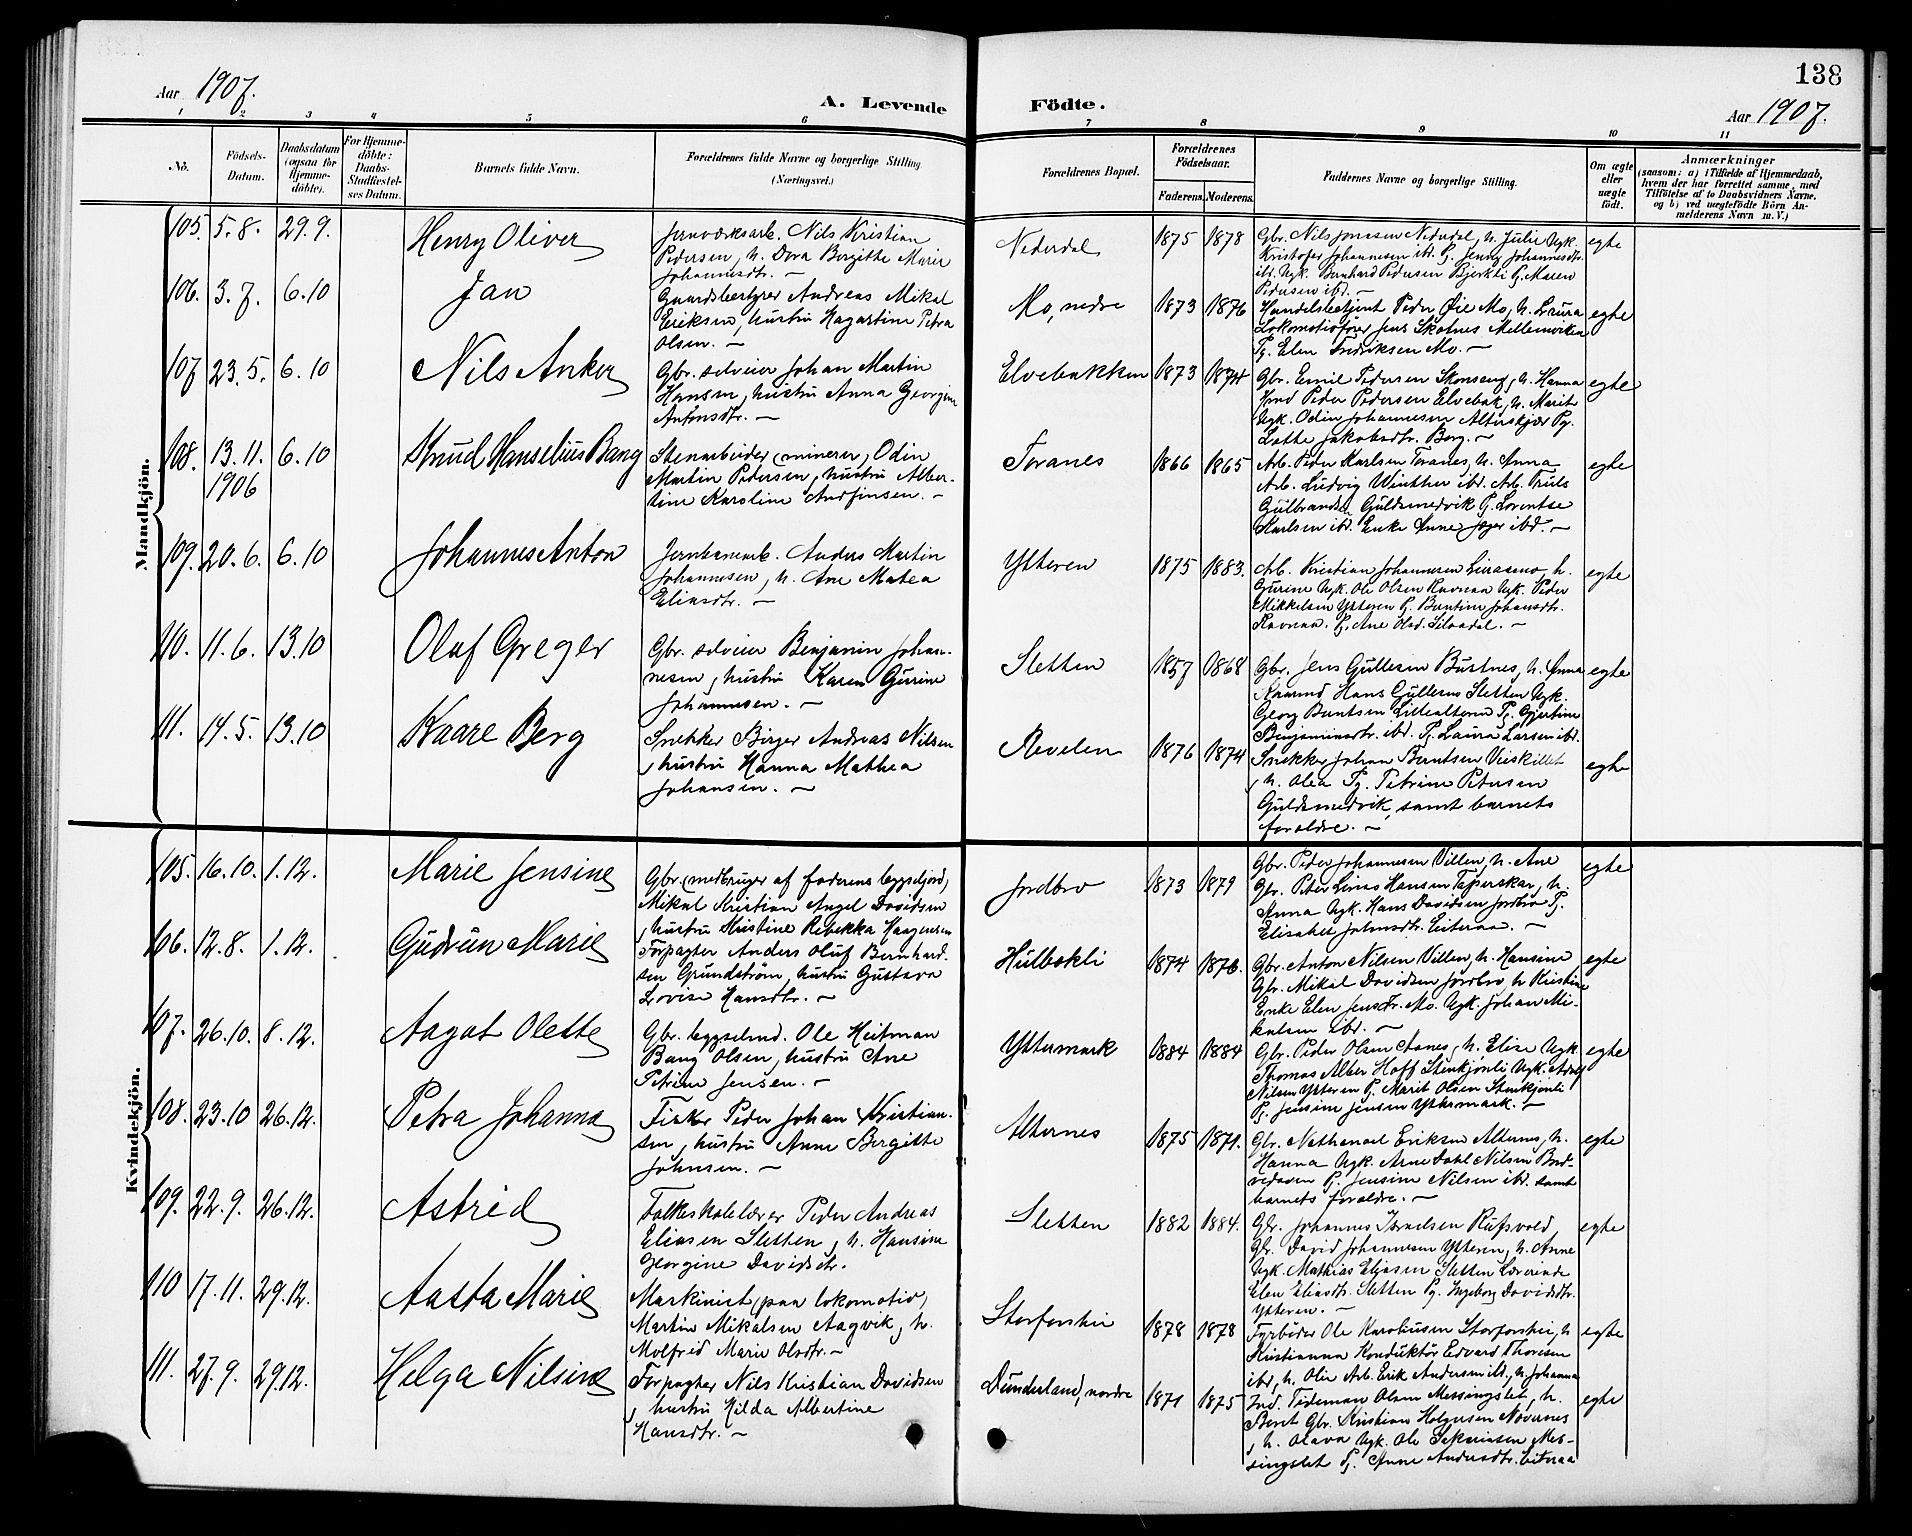 138
Aar 1907.
A. Levende Födte.
Aar 1907.
1 2 3 4 5 6 7 8 9 10 11
No.
Födsels-
Datum.
Daabsdatum
(ogsaa for
Hjemme-
döbte).
For Hjemme-
döbte:
Daabs-
Stadfæstel-
ses Datum.
Barnets fulde Navn.
Forældrenes fulde Navne og borgerlige Stilling
(Næringsvei.)
Forældrenes Bopæl.
Forældrenes
Födselsaar.
Faderens. Moderens.
Faddernes Navne og borgerlige Stilling.
Om ægte
eller
uægte
födt.
Anmærkninger
(saasom: a) i Tilfælde af Hjemmedaab,
hvem der har forrettet samme, med
Tilföielse af to Daabsvidners Navne,
og b) ved uægtefödte Börn An-
melderens Navn m. V.)
Mandkjön.
105. 5.8. 29.9. Henry Oliver
Jernværksarb. Nils Kristian
Pedersen, h. Dora Bergitte Marie
Johannesdtr. —
Nederdal 1875 1878
Gbr. Nils Jonassen Nederdal, h. Julie Ugk.
Kristofer Johannesen ibd. Pg. Jenny Johannesdtr.
ibd. Ugk. Bernhard Pedersen Bjerkli Pg. Maren
Pedersen ibd. —
egte
106. 3.7. 6.10 Jan
Gaardsbestyrer Andreas Mikal
Eriksen, hustru Hagartine Petra
Olsen. —
Mo, nedre 1873 1876
Handelsbetjent Peder Øie Mo, h. Laura
Lokomotivfører Jens Skotnes Mellemviken
Pg. Elen Fredriksen Mo. —
egte
107 23.5. 6.10 Nils Anker
Gbr. selveier Johan Martin
Hansen, hustru Anna Georgine
Antonsdtr. —
Elvebakken 1873 1874
Gbr. Emil Pedersen Skonseng, h. Hanna
Ind Peder Pedersen Elvebak, h. Marit
Ugk. Odin Johannesen Alterskjær Pg.
Lotte Jakobsdtr. Berg. —
egte
108. 13.11. 1906 6.10 Knud Hanselius Bang
Stenarbeider (minerer) Odin
Martin Pedersen, hustru Alber-
tine Karoline Andfinsen. —
Toranes 1866 1865
Arb. Peder Karlsen Toranes, h. Anna
Arb. Ludvig Winther ibd. Arb. Truls
Gulbrandsen Guldsmedvik Pg. Lorentse
Karlsen ibd. Enke Anne Jager ibd. —
egte
109. 20.6. 6.10 Johannes Anton
Jernbanearb. Anders Martin
Johannesen, h. Ane Matea
Eliasdtr. —
Ytteren 1875 1883.
Arb. Kristian Johannesen Lirasmo h.
Gurine Ugk. Ole Olsen Ravnaa Ugk. Peder
Mikkelsen Ytteren Pg. Berntine Johansdtr.
Ravnaa. Pg. Ane Olsd. Silaadal. —
egte
110. 11.6. 13.10 Olaf Greger
Gbr. selveier Benjamin Johan-
nesen, hustru Karen Gurine
Johannesen. —
Sletten 1857 1868
Gbr. Jens Gullesen Bustnes, h. Anna
Kaarmd Hans Gullesen Sletten Ugk.
Georg Berntsen Lillealteren Pg. Gjertine
Benjaminsdtr. ibd. Pg. Laura Larsen ibd.
egte
111. 14.5. 13.10 Kaare Berg
Snekker Birger Andreas Nilsen
, hustru Hanna Mathea
Johansen. —
Revelen 1876 1874
Snekker Johan Berntsen Veiskillet
, h. Olea Pg. Petrine Petersen
Guldsmedvik, samt barnets
forældre. —
egte
Kvindekjön.
105. 16.10. 1.12. Marie Jensine
Gbr. (medbruger af faderens bygseljord)
Mikal Kristian Angel Davidsen
, hustru Kristine Rebekka Haagensen
Jordbro 1873 1879
Gbr. Peder Johannesen Villen, h. Ane
Gbr. Peter Linas Hansen Tapperskar, h.
Anna Ugk. Hans Davidsen Jordbro Pg.
Elisabet Johnsdtr. Eiteraa. —
egte
106. 12.8. 1.12. Gudrun Marie
Forpagter Anders Oluf Bernhard-
sen Grundstrøm, hustru Gustava
Lovise Hansdtr. —
Hulbækli 1874 1876.
Gbr. Anton Nilsen Villen, h. Hansine
Gbr. Mikal Davidsen Jordbro, h. Kristine
Enke Elen Jensdtr. Mo. Ugk. Johan Mi-
kalsen ibd. —
egte
107. 26.10. 8.12. Aagot Olette
Gbr. bygselmd. Ole Heitman
Bang Olsen, hustru Ane
Petrine Jensen. —
Yttermark 1884 1884
Gbr. Peder Olsen Aanes, h. Elise Ugk.
Thomas Alber Hoff Stenkjønli Ugk. Adolf
Nilsen Ytteren Pg. Marit Olsen Stenkjønli
Pg. Jensine Jensen Yttermark. —
egte
108. 23.10 26.12. Petra Johanna
Fisker Peder Johan Kristian-
sen, hustru Anne Bergitte
Johnsen. —
Alternes 1875 1871.
Gbr. Nathanael Eriksen Alternes, h.
Hanna Ugk. Arne Dahl Nilsen Bred-
vedaven Pg. Jensine Nilsen ibd. samt
barnets forældre. —
egte
109. 22.9. 26.12. Astrid
Folkeskolelærer Peder Andreas
Eliasen Sletten, h. Hansine
Georgine Davidsdtr.
Sletten 1882 1884.
Gbr. Johannes Israelsen Rufsvold,
Gbr. David Johannesen Ytteren, h. Anne
Ugk. Mathias Eliasen Sletten Lærerinde
Elen Eliasdtr. Sletten Pg. Ingeborg Davidsdtr.
Ytteren. —
egte
110 17.11. 29.12. Aasta Marie
Maskinist (paa lokomotiv)
Martin Mikalsen Aagvik, h.
Molfrid Marie Olsdtr. —
Storforshei 1878 1878
Fyrbøder Ole Karolius​en Storforshei, h
Kristianna Konduktør Edvard Thoresen
ibd, h. Olie Arb. Erik Andersen ibd, h. Johanna
egte
111. 27.9. 29.12. Helga Nilsine
Forpagter Nils Kristian Davidsen
, hustru Hilda Albertine
Hansdtr. —
Dunderland, nordre 1871 1875
Ind. Tideman Olsen Messingslet, h.
Beret Gbr. Kristian Holgersen Nævernes
, h. Olava Ugk. Ole Sakariasen Mes-
singslet Pg. Anne Andersdtr. Eiteraa
egte